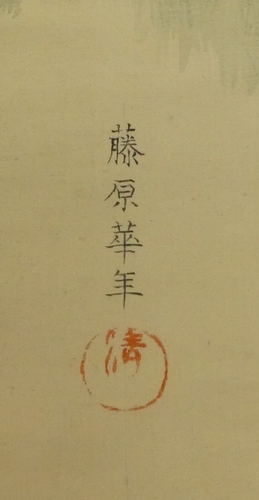 藤原華年
清